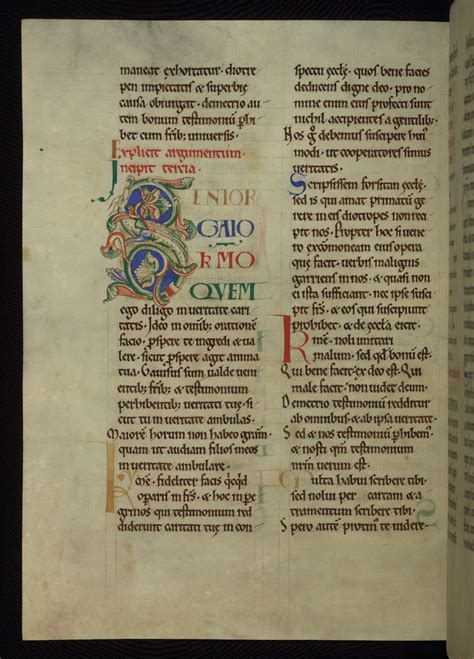 maneat exhortatur. diotre
pen impietatis & superbię
causa obiurgat. demetrio au
tem bonum testimoniū phi
bet cum frib; uniuersis.
Explicit argumentum.
Incipit tercia.
SENIOR
GAIO
KRMO
QVEM
ego diligo in ueritate cari
tatis. Ideo in omib; orationē
facio. pspere te ingredi & ua
lere. sicut pspere agit anima
tua. Gauisus sum ualde ueni
entib; frib; & testimonium
perhibentib; ueritati tuę. si
cut tu in ueritate ambulas.
Maiorē horum non habeo gratiā.
quam ut audiam filios meos
in ueritate ambulare.
Kme. fideliter facis qcqd
operaris in frs. & hoc in pe
grinos qui testimonium red
diderunt caritati tuę in con
spectu ęcclę. quos bene facies
deducens digne deo. pro no
mine enim eius profecti sunt
nichil accipientes a gentilib;
Nos g debemus suscipere hui'
modi. ut cooperatores simus
ueritatis.
Scripsissem forsitan ęcclę.
sed is qui amat primatū ge
rere in eis diotrepes non reci
pit nos. Propter hoc si uene
ro cōmoneam eius opera
quę facit. uerbis malignis
garriens in nos. & quasi non
ei ista sufficiant. nec ipse susci
pit frs. & eos qui suscipiunt
prohibet. & de ęccla eicit.
Krme. noli imitari
malum. sed qd bonū est.
Qui bene facit. ex deo est. Qui
male facit. non uidet deum.
Demetrio testimoniū redditur
ab omnibus. & ab ipsa ueritate.
Sed & nos testimoniū phibem'.
& nosti qm testimonium
nrm uerum est.
Multa habui scribere tibi.
sed nolui per cartam & a
tramentum scribere tibi.
Spero autē protin' te uidere.